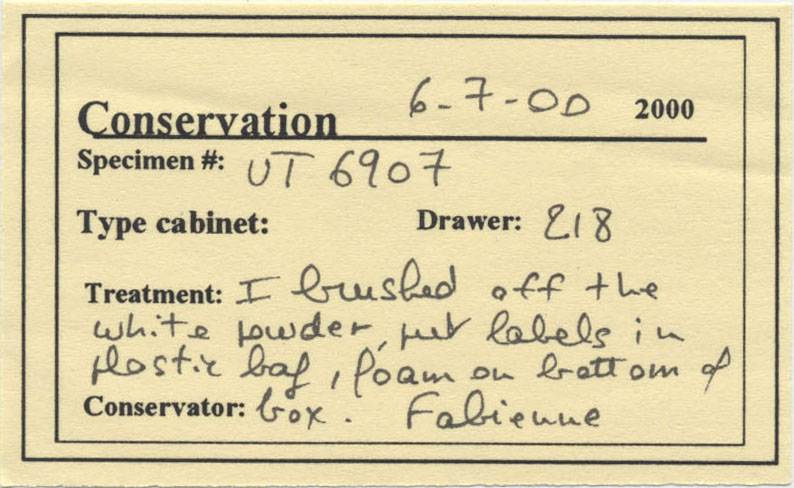 Conservation 6-7-00 2000
Specimen #: UT 6907
Type cabinet: Drawer: 218
Treatment: I brushed off the
white powder, put labels in
plastic bag, foam on bottom of
Conservator: box. Fabienne